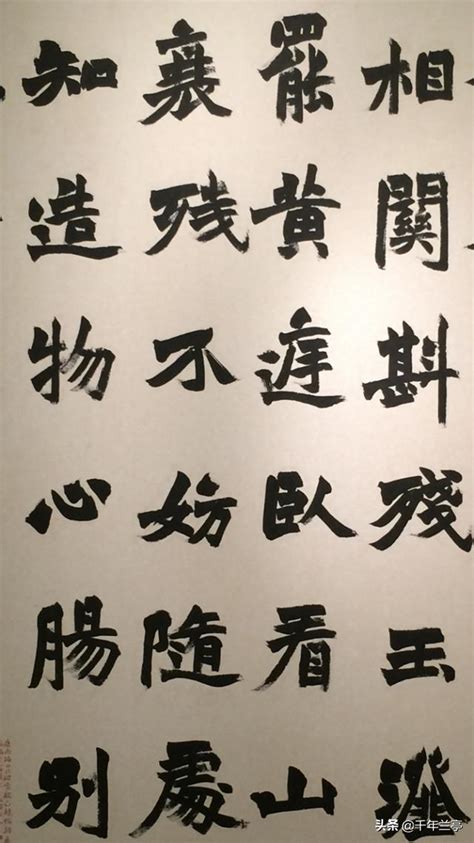 相關斟殘玉瀣
罷黄庭臥看山
衰残不妨隨處
知造物心腸别
头条 @千年兰亭